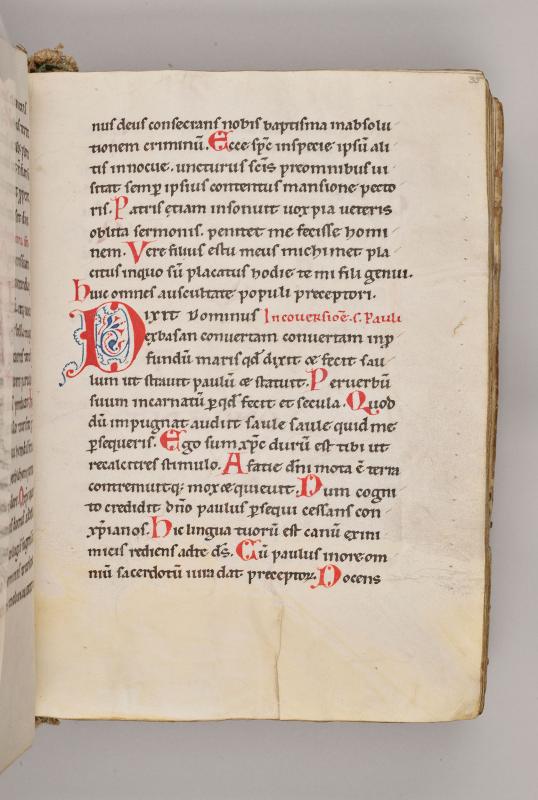 35
nus deus consecrans nobis baptisma inabsolu
tionem criminū. Ecce sp̄c inspecie ipsiū ali
tis innocue. uncturus sc̄is precomnibus ui
sitat semp̄ ipsius contentus mansione pecto
ris. Patris etiam insonuit uox pia ueteris
oblita sermonis. penitet me fecisse homi
nem. Vere filius es tu meus michimet pla
citus inquo sū placatus hodie te mi fili genui.
huic omnes auscultate populi preceptori.
Dixit dominus In cōuersiōe. S. Pauli
exbasan conuertam conuertam inp̄
fundū maris qd̄ dixit ⁊ fecit sau
lum ut strauit paulū ⁊ statuit. Peruerbū
suum incarnatū p̄qd̄ fecit et secula. Quod
dū impugnat audiit saule saule quid me
p̄sequeris. Ego sum xp̄c durū est tibi ut
recalcitres stimulo. A facie dn̄i mota ē terra
contremuitq; mox ⁊ quieuit. Dum cogni
to credidit dn̄o paulus p̄sequi cessans con
xp̄ianos. hic lingua tuorū est canū exini
micis rediens adte ds̄. Cū paulus inore om
niū sacerdotū iura dat preceptor. Docens